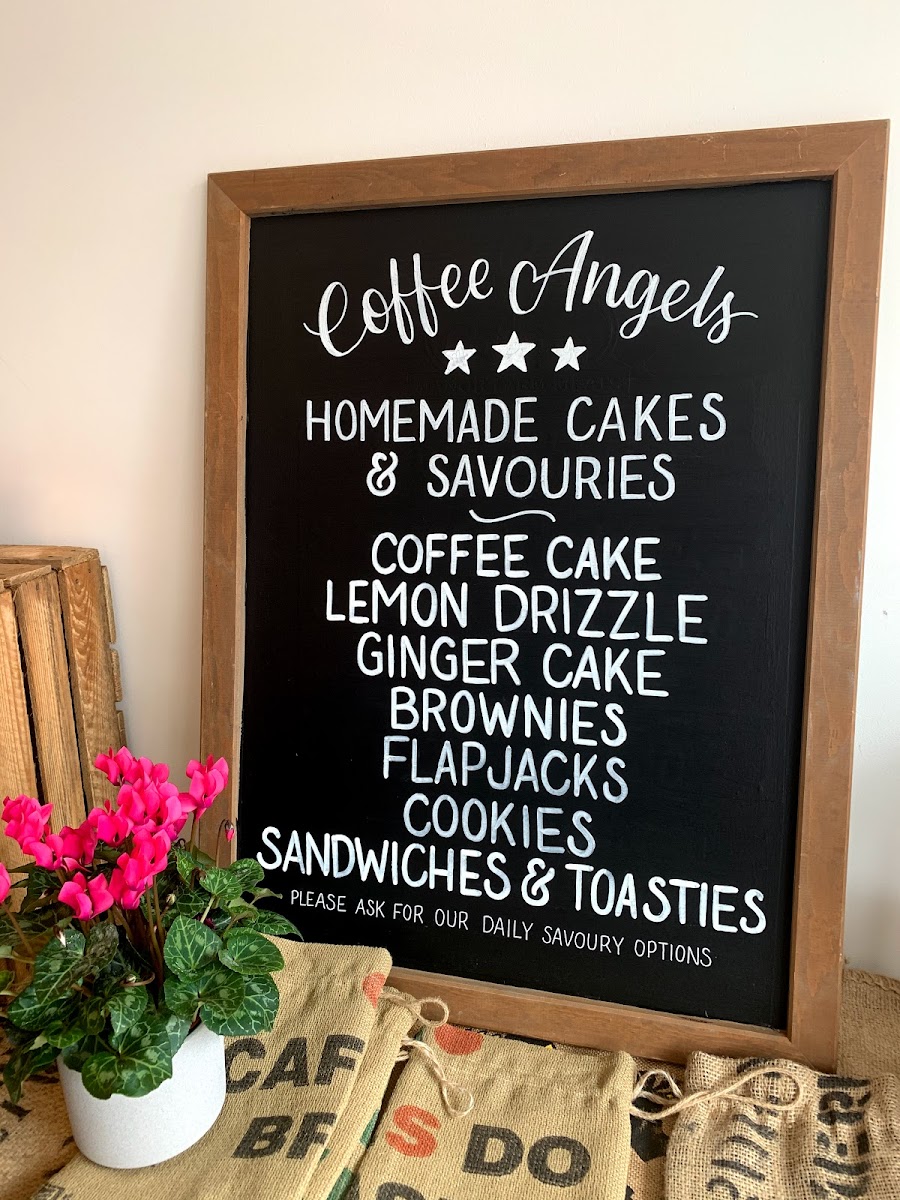 Coffee Angels
HOMEMADE CAKES
& SAVOURIES
COFFEE CAKE
LEMON DRIZZLE
GINGER CAKE
BROWNIES
FLAPJACKS
COOKIES
SANDWICHES & TOASTIES
PLEASE ASK FOR OUR DAILY SAVOURY OPTIONS
CAF
BR
S DO